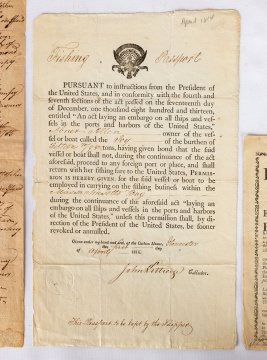 April 1814
Fishing Passport
PURSUANT to instructions from the President of
the United States, and in conformity with the fourth and
seventh sections of the act passed on the seventeenth day
of December, one thousand eight hundred and thirteen,
entitled "An act laying an embargo on all ships and ves-
sels in the ports and harbors of the United States,"
owner of the ves-
sel or boat called the of the burthen of
tons, having given bond that the said
vessel or boat shall not, during the continuance of the act
aforesaid, proceed to any foreign port or place, and shall
return with her fishing fare to the United States, PERMIS-
SION IS HEREBY GIVEN, for the said vessel or boat to be
employed in carrying on the fishing business within the
Massachusetts Bay
during the continuance of the aforesaid act "laying an
embargo on all ships and vessels in the ports and harbors
of the United States," unless this permission shall, by di-
rection of the President of the United States, be sooner
revoked or annulled.
Given under my hand and seal, at the Custom House,
this first day
of April 181
John Kittridge Collector.
This Passport to be kept by the Skipper